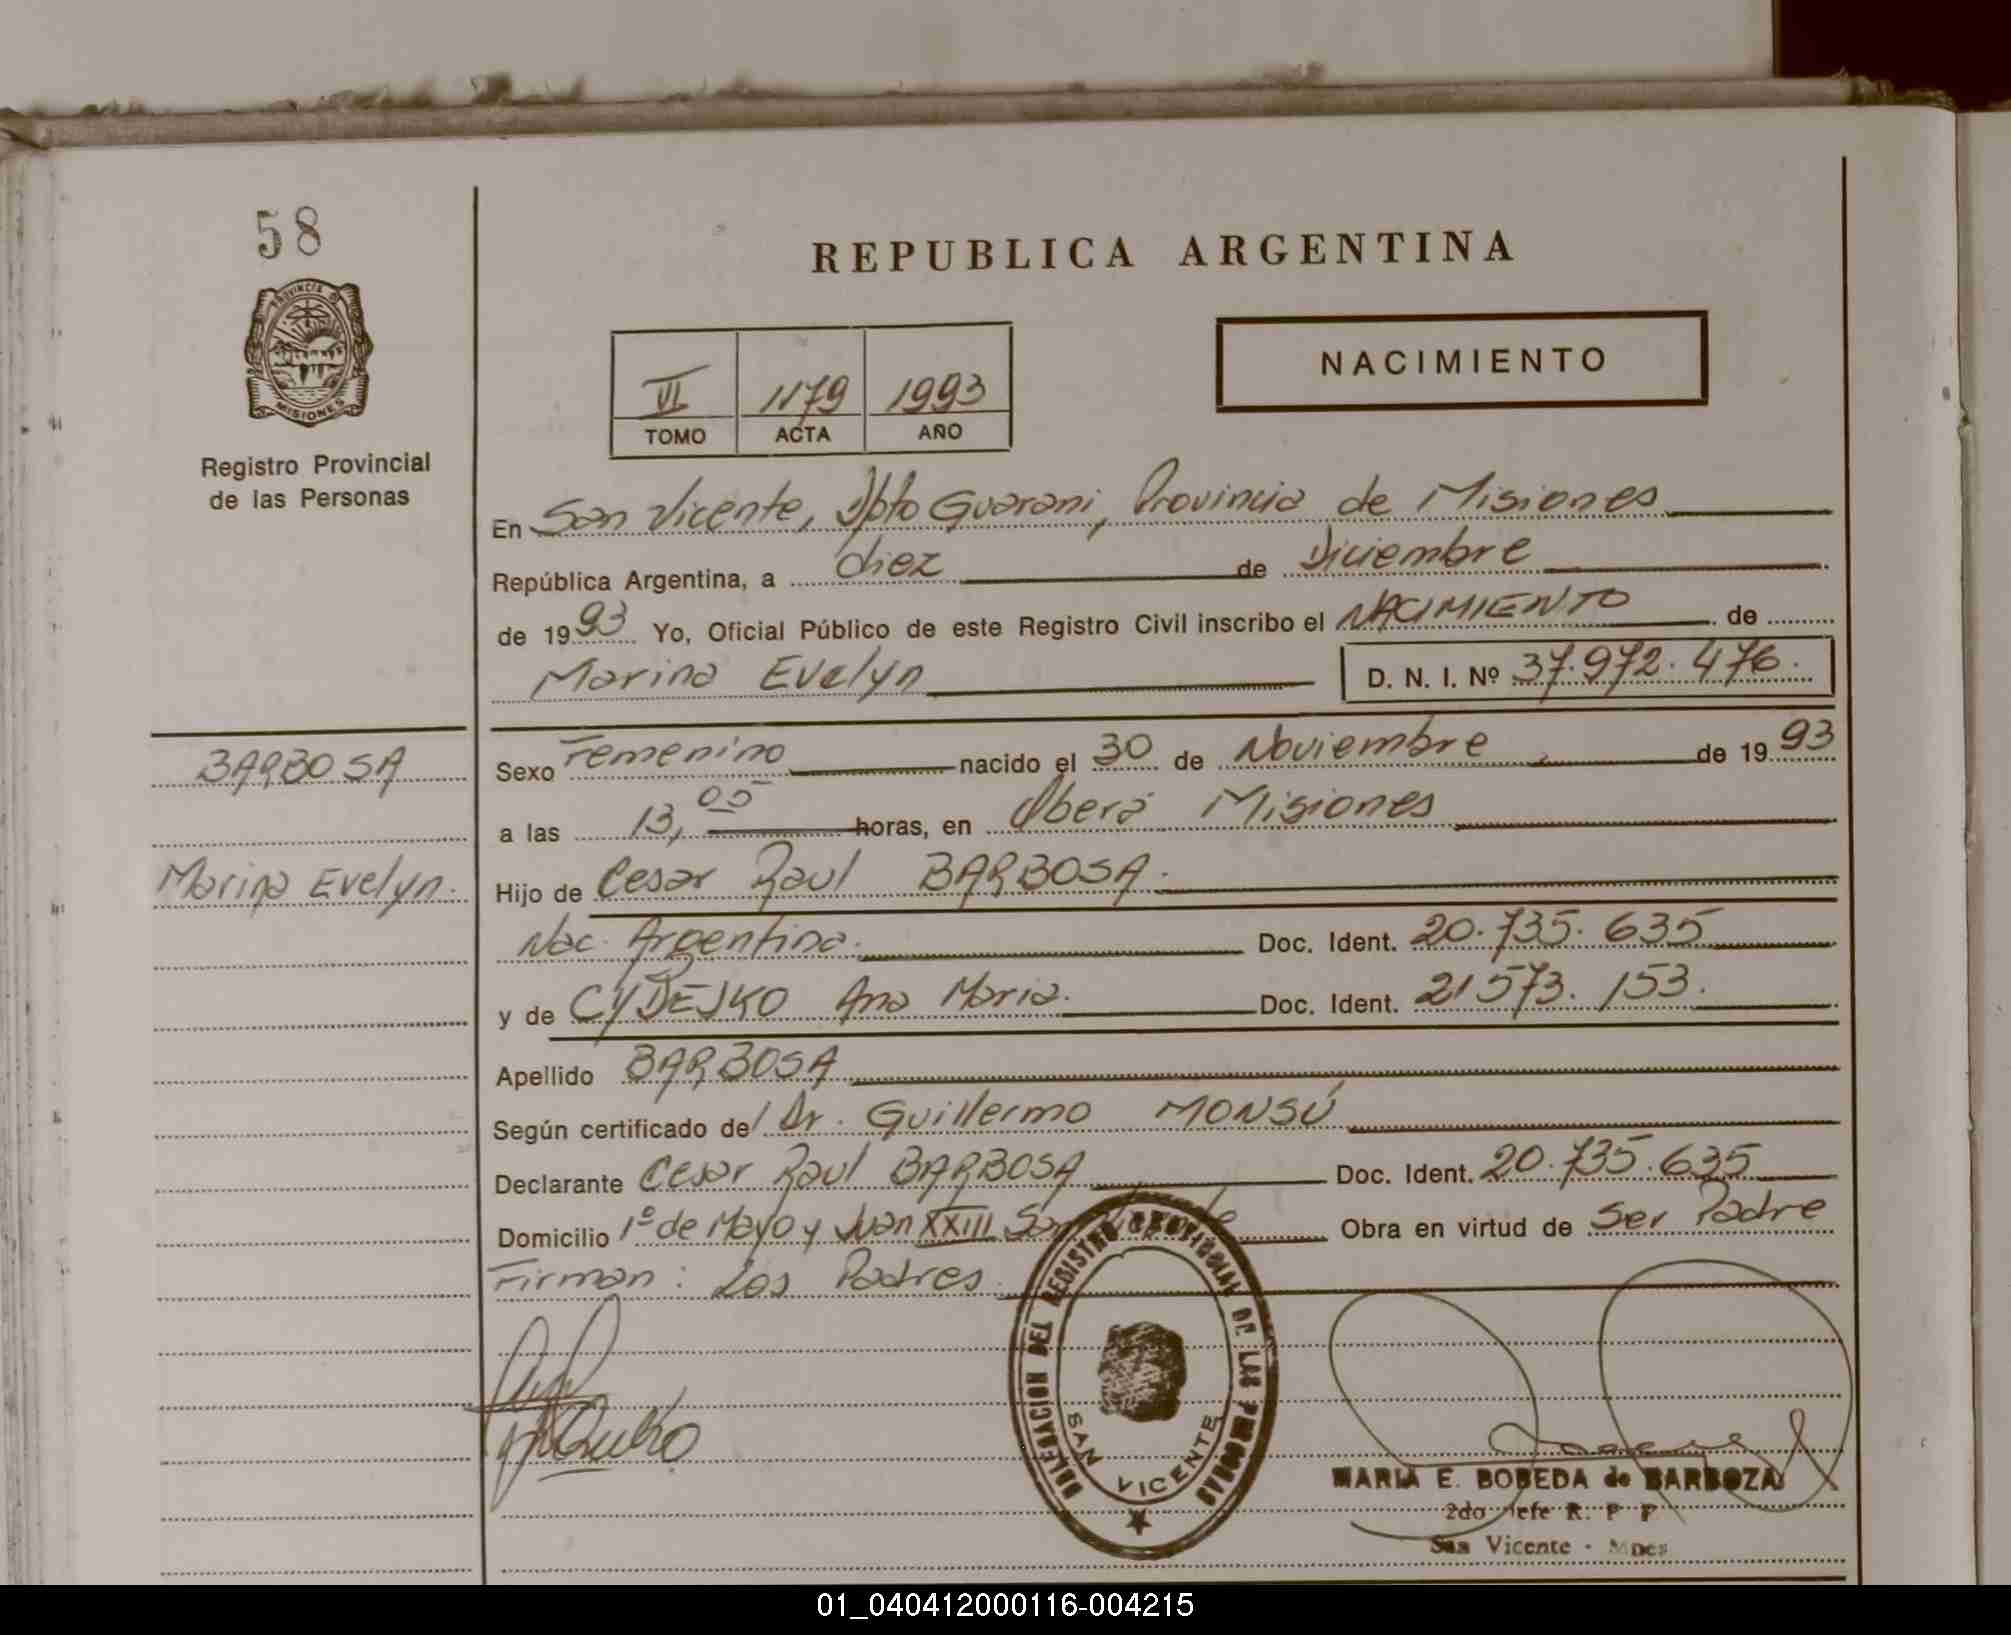 58
REPUBLICA ARGENTINA
PROVINCIA DE
MISIONES
Registro Provincial
de las Personas
VI 1179 1993
TOMO ACTA AÑO
NACIMIENTO
En San Vicente, Dpto Guarani, Provincia de Misiones
República Argentina, a diez de Diciembre
de 1993 Yo, Oficial Público de este Registro Civil inscribo el NACIMIENTO de
Marina Evelyn D. N. I. Nº 37.972.476.
BARBOSA
Sexo Femenino nacido el 30 de Noviembre de 1993
a las 13,05 horas, en Oberá Misiones
Marina Evelyn.
Hijo de Cesar Raul BARBOSA.
Nac. Argentina. Doc. Ident. 20.735.635
y de CYDEJKO Ana Maria. Doc. Ident. 21573.153.
Apellido BARBOSA
Según certificado de/ Dr. Guillermo MONSÚ
Declarante Cesar Raul BARBOSA Doc. Ident. 20.735.635
Domicilio 1º de Mayo y Juan XXIII San Vicente Obra en virtud de Ser Padre
Firman: Los Padres.
DELEGACION DEL REGISTRO PROVINCIAL DE LAS PERSONAS
SAN VICENTE
MARIA E. BOBEDA de BARBOZA
2do Jefe R. P P
San Vicente - Mnes
01_040412000116-004215